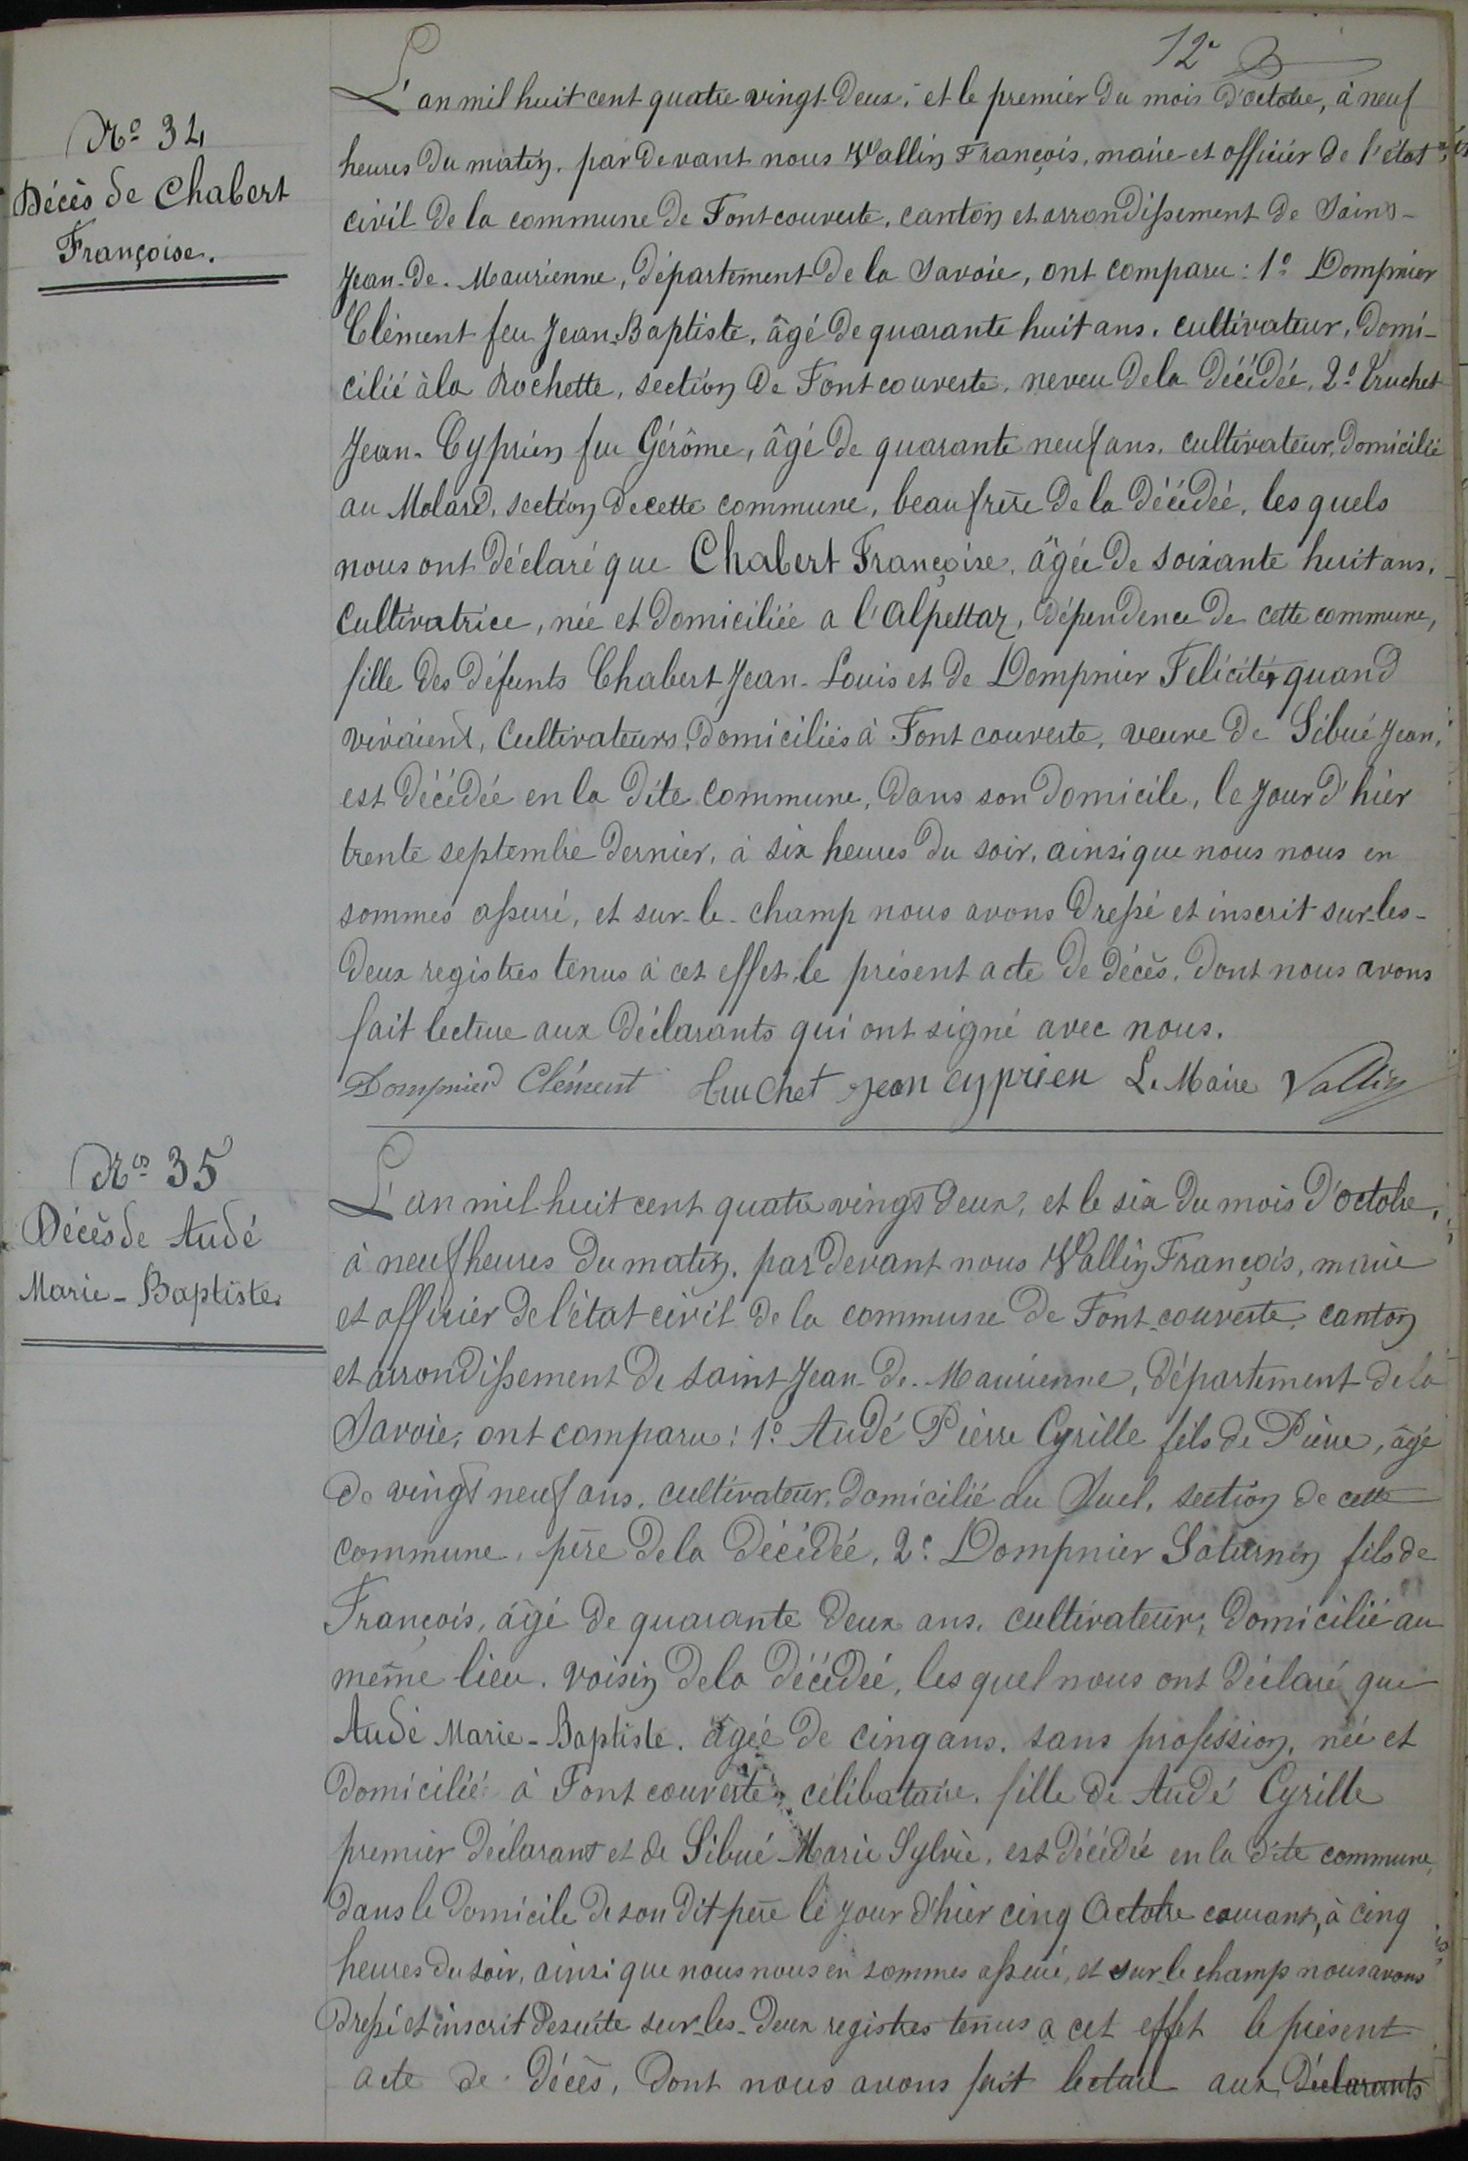 12e
L'an mil huit cent quatre vingt deux, et le premier du mois d'octobre, à neuf
No 34
heures du matin, par devant nous Vallin François, maire et officier de l'état
Décès de Chabert
civil de la commune de Fontcouverte, canton et arrondissement de Saint-
Françoise.
Jean-de-Maurienne, département de la Savoie, ont comparu: 1º Dompnier
Clément feu Jean-Baptiste, âgé de quarante huit ans, cultivateur, domi-
cilié à la Rochette, section de Fontcouverte, neveu de la décédée, 2º Truchet
Jean-Cyprien feu Gérôme, âgé de quarante neuf ans, cultivateur, domicilié
au Molard, section de cette commune, beau frère de la décédée, les quels
nous ont déclaré que Chabert Françoise, âgée de soixante huit ans,
cultivatrice, née et domiciliée a l'Alpettaz, dépendence de cette commune,
fille des défunts Chabert Jean-Louis et de Dompnier Félicité, quand
vivaient, cultivateurs, domiciliés à Fontcouverte, veuve de Sibué Jean,
est décédée en la dite commune, dans son domicile, le jour d'hier
trente septembre dernier, à six heures du soir, ainsi que nous nous en
sommes assuré, et sur-le-champ nous avons dressé et inscrit sur-les-
deux registres tenus à cet effet, le présent acte de décès, dont nous avons
fait lecture aux déclarants qui ont signé avec nous.
Dompnier Clément Truchet Jean Cyprien Le Maire Vallin
No 35
L'an mil huit cent quatre vingt deux, et le six du mois d'octobre,
Décès de Audé
à neuf heures du matin, par devant nous Vallin François, maire
Marie-Baptiste
et officier de l'état civil de la commune de Font-couverte, canton
et arrondissement de Saint Jean-de-Maurienne, département de la
Savoie, ont comparu: 1º Audé Pierre Cyrille fils de Pierre, âgé
de vingt neuf ans, cultivateur, domicilié au Suel, section de cette
commune, père de la décédée, 2º Dompnier Saturnin fils de
François, âgé de quarante deux ans, cultivateur, domicilié au
même lieu, voisin de la décédée, les quel nous ont déclaré que
Audé Marie-Baptiste, âgée de cinq ans, sans profession, née et
domiciliée à Fontcouverte, célibataire, fille de Audé Cyrille
premier déclarant et de Sibué Marie Sylvie, est décédée en la dite commune,
dans le domicile de son dit père le jour d'hier cinq Octobre courant, à cinq
heures du soir, ainsi que nous nous en sommes assuré, et sur-le champ nous avons
dressé et inscrit de suite sur-les-deux registres tenus a cet effet le présent
acte de décès, dont nous avons fait lecture aux déclarants